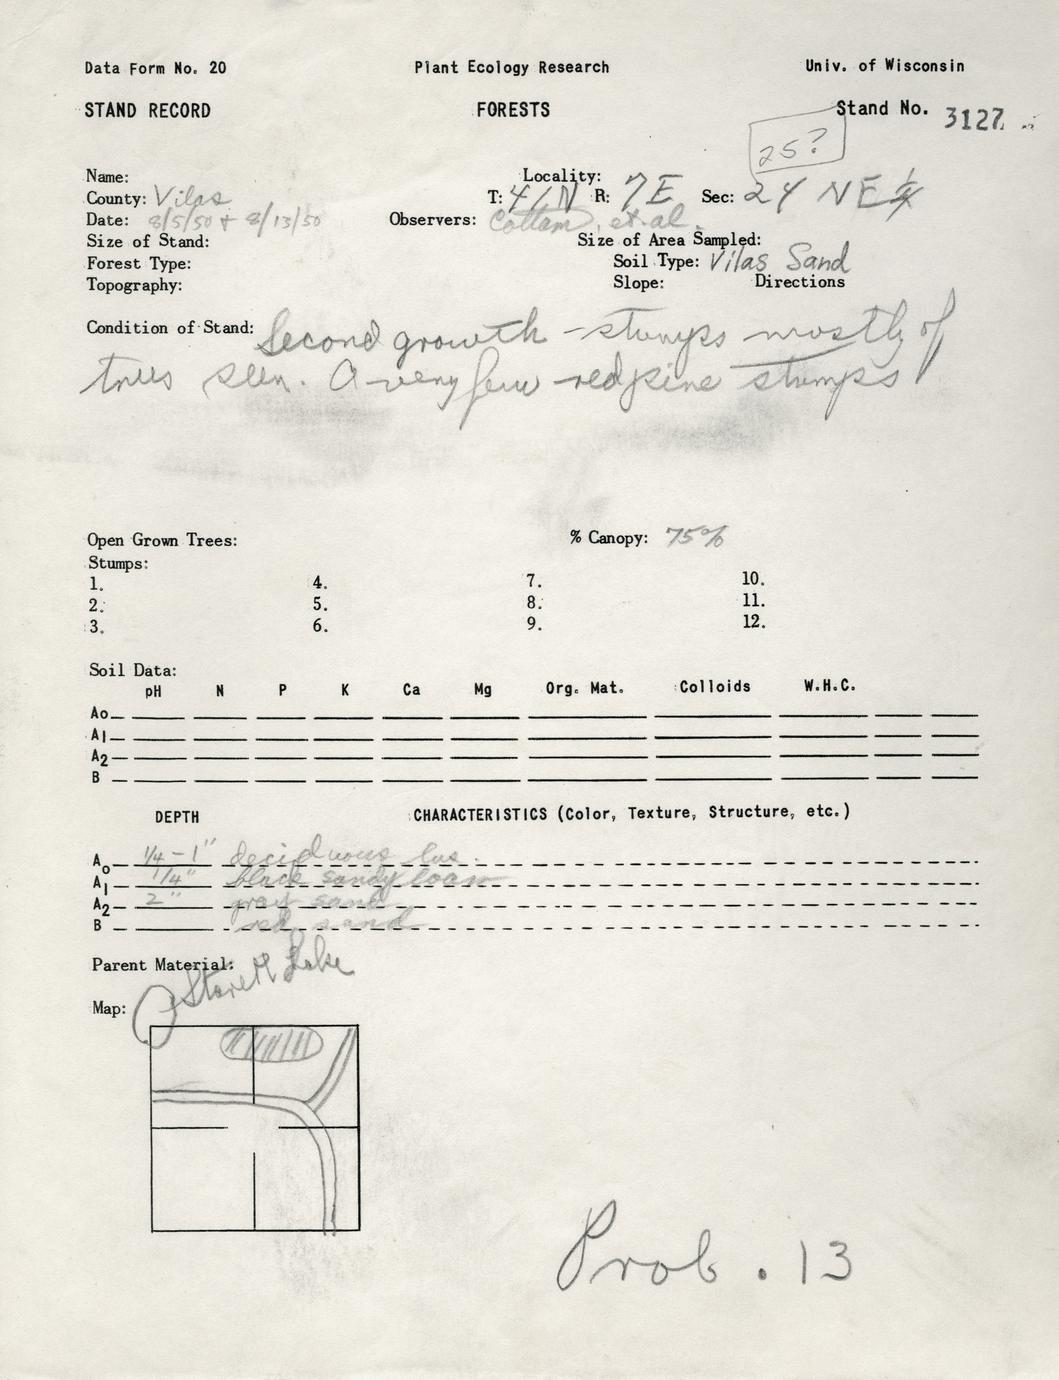 Data Form No. 20 Plant Ecology Research Univ. of Wisconsin
STAND RECORD FORESTS Stand No. 3127
25?
Name: Locality:
County: Vilas T: 41N R: 7E Sec: 24 NE¼
Date: 8/5/50 + 8/13/50 Observers: Cottam, et. al.
Size of Stand: Size of Area Sampled:
Forest Type: Soil Type: Vilas Sand
Topography: Slope: Directions
Condition of Stand: Second growth - stumps mostly of
trees seen. A very few red pine stumps
Open Grown Trees: % Canopy: 75%
Stumps:
1. 4. 7. 10.
2. 5. 8. 11.
3. 6. 9. 12.
Soil Data:
pH N P K Ca Mg Org. Mat. Colloids W.H.C.
Ao
A1
A2
B
DEPTH CHARACTERISTICS (Color, Texture, Structure, etc.)
Ao ¼ - 1" deciduous lvs.
A1 1/4" black sandy loam
A2 2" gray sand
B red sand
Parent Material:
Lake
Map:
Prob. 13